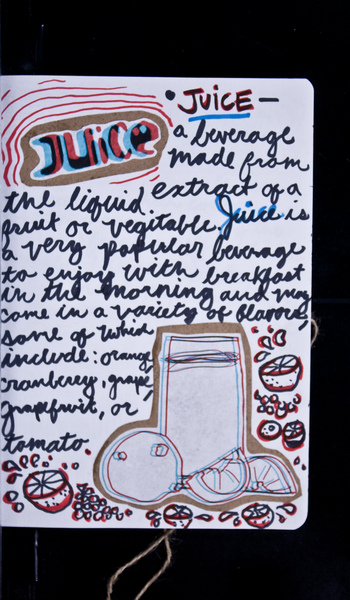 • JUICE —
JUICE
a beverage
made from
the liquid extract of a
fruit or vegitable Juice is
a very popular beverage
to enjoy with breakfast
in the morning and may
come in a variety of flavors,
some of which
include: orange,
cranberry, grape,
grapefruit, or
tomato